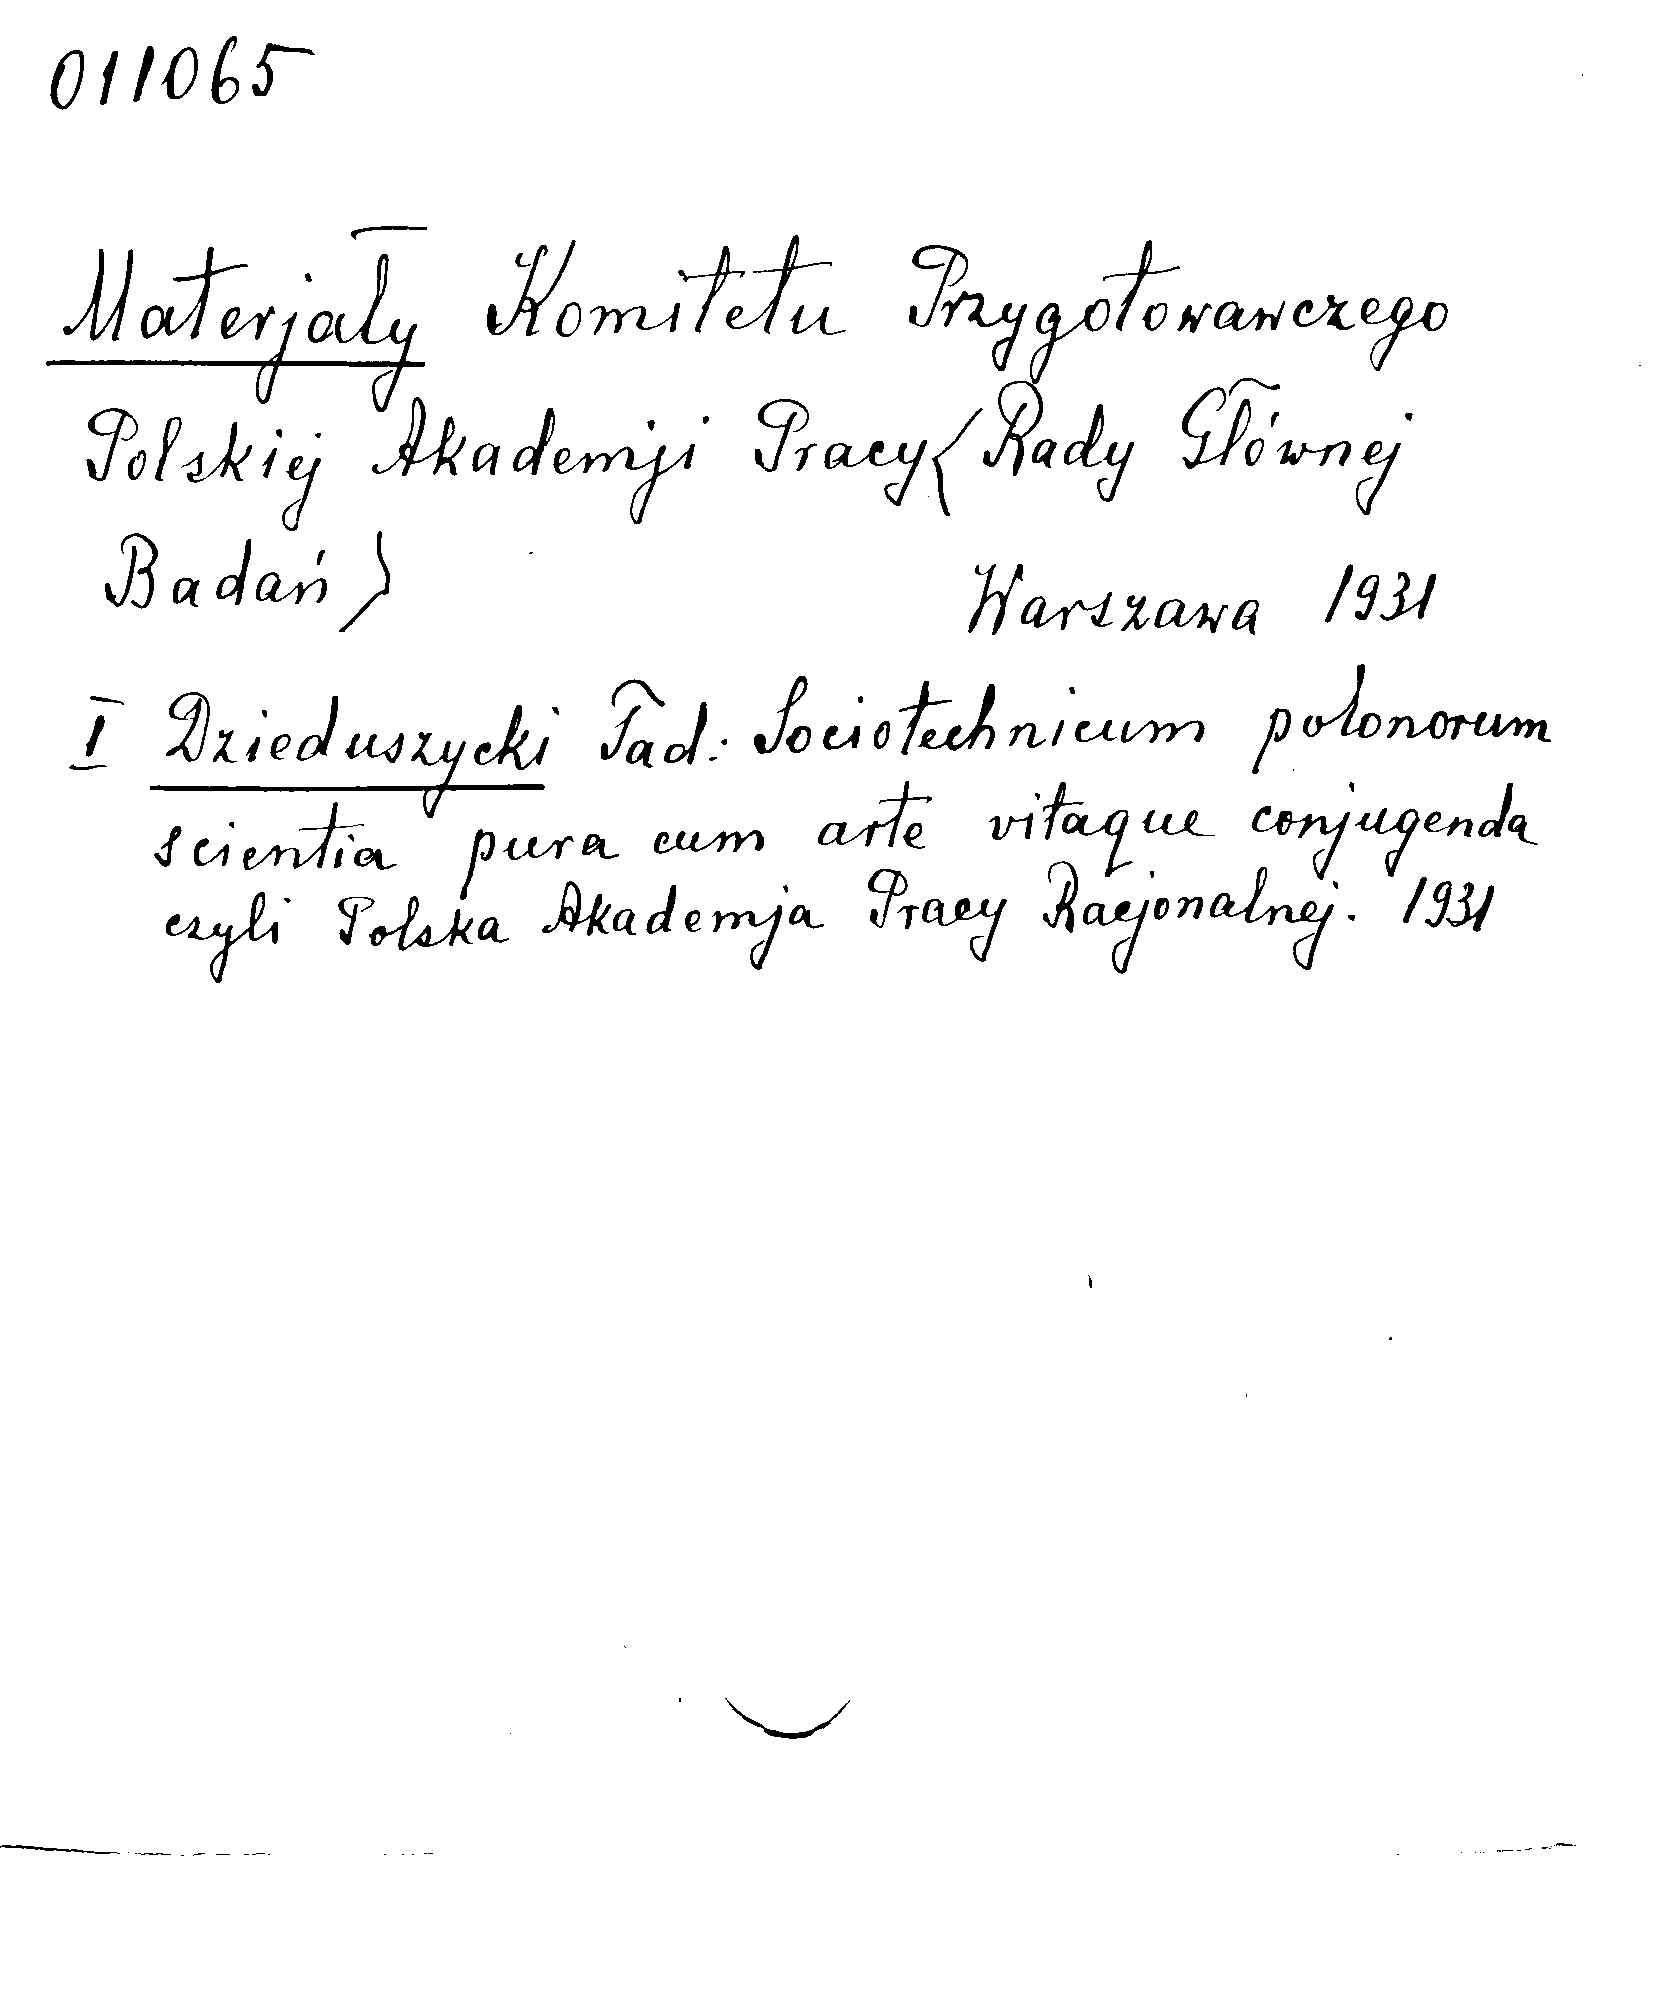 011065
Materjały Komitetu Przygotowawczego
Polskiej Akademji Pracy (Rady Głównej
Badań)
Warszawa 1931
I Dzieduszycki Tad.: Sociotechnicum polonorum
scientia pura cum arte vitaque conjugenda
czyli Polska Akademja Pracy Racjonalnej. 1931